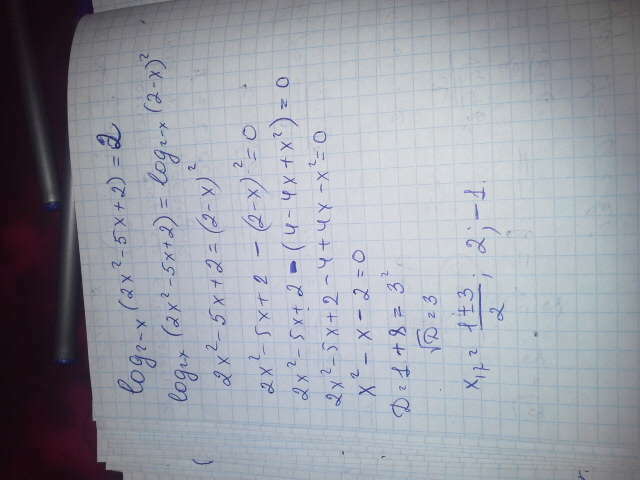 log₂₋ₓ (2x² - 5x + 2) = 2
log₂₋ₓ (2x² - 5x + 2) = log₂₋ₓ (2 - x)²
2x² - 5x + 2 = (2 - x)²
2x² - 5x + 2 - (2 - x)² = 0
2x² - 5x + 2 - (4 - 4x + x²) = 0
2x² - 5x + 2 - 4 + 4x - x² = 0
x² - x - 2 = 0
D = 1 + 8 = 3²
√D = 3
x₁,₂ = (1 ± 3)/2 ; 2 ; -1.